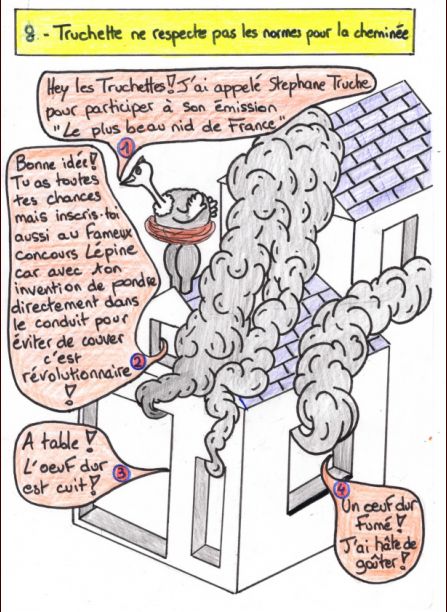 8.- Truchette ne respecte pas les normes pour la cheminée
Hey les Truchettes ! J'ai appelé Stephane Truche
pour participer à son émission
"Le plus beau nid de France"
1
Bonne idée !
Tu as toutes
tes chances
mais inscris-toi
aussi au Fameux
concours Lépine
car avec ton
invention de pondre
directement dans
le conduit pour
éviter de couver
c'est
révolutionnaire
!
2
A table !
L'oeuf dur
est cuit !
3
4
Un oeuf dur
Fumé !
J'ai hâte de
goûter !